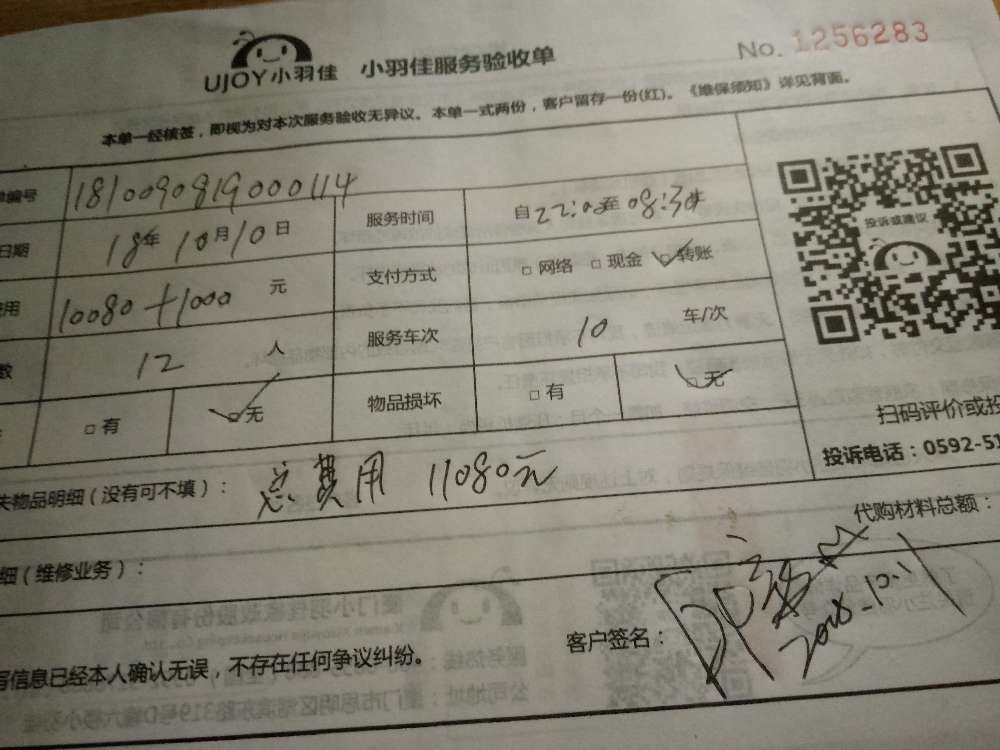 UJOY小羽佳 小羽佳服务验收单 No. 1256283
本单一经核签，即视为对本次服务验收无异议。本单一式两份，客户留存一份(红)。《维保须知》详见背面。
编号 1810090819000114
日期 18年10月10日 服务时间 自22:00至08:30
用 10080+1000 元 支付方式 □网络 □现金 ☑转账
数 12 人 服务车次 10 车/次
□有 ☑无 物品损坏 □有 ☑无
投诉或建议
扫码评价或投
投诉电话：0592-51
失物品明细（没有可不填）： 总费用 11080元
代购材料总额：
细（维修业务）：
客户签名： 2018.10.11
写信息已经本人确认无误，不存在任何争议纠纷。